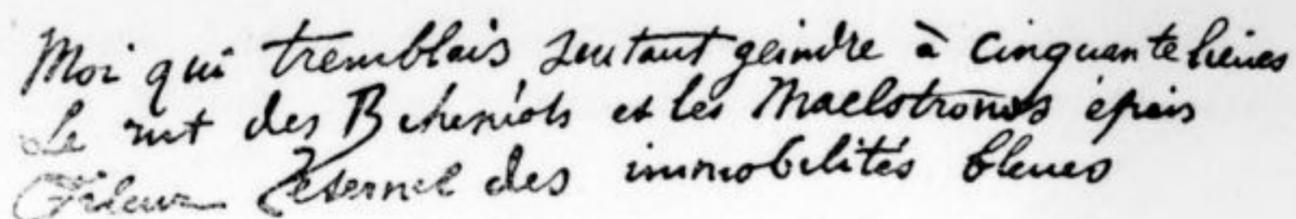 Moi qui tremblais sentant geindre à cinquante lieues
Le rut des Béhémots et les Maelstroms épais
Fileur éternel des immobilités bleues